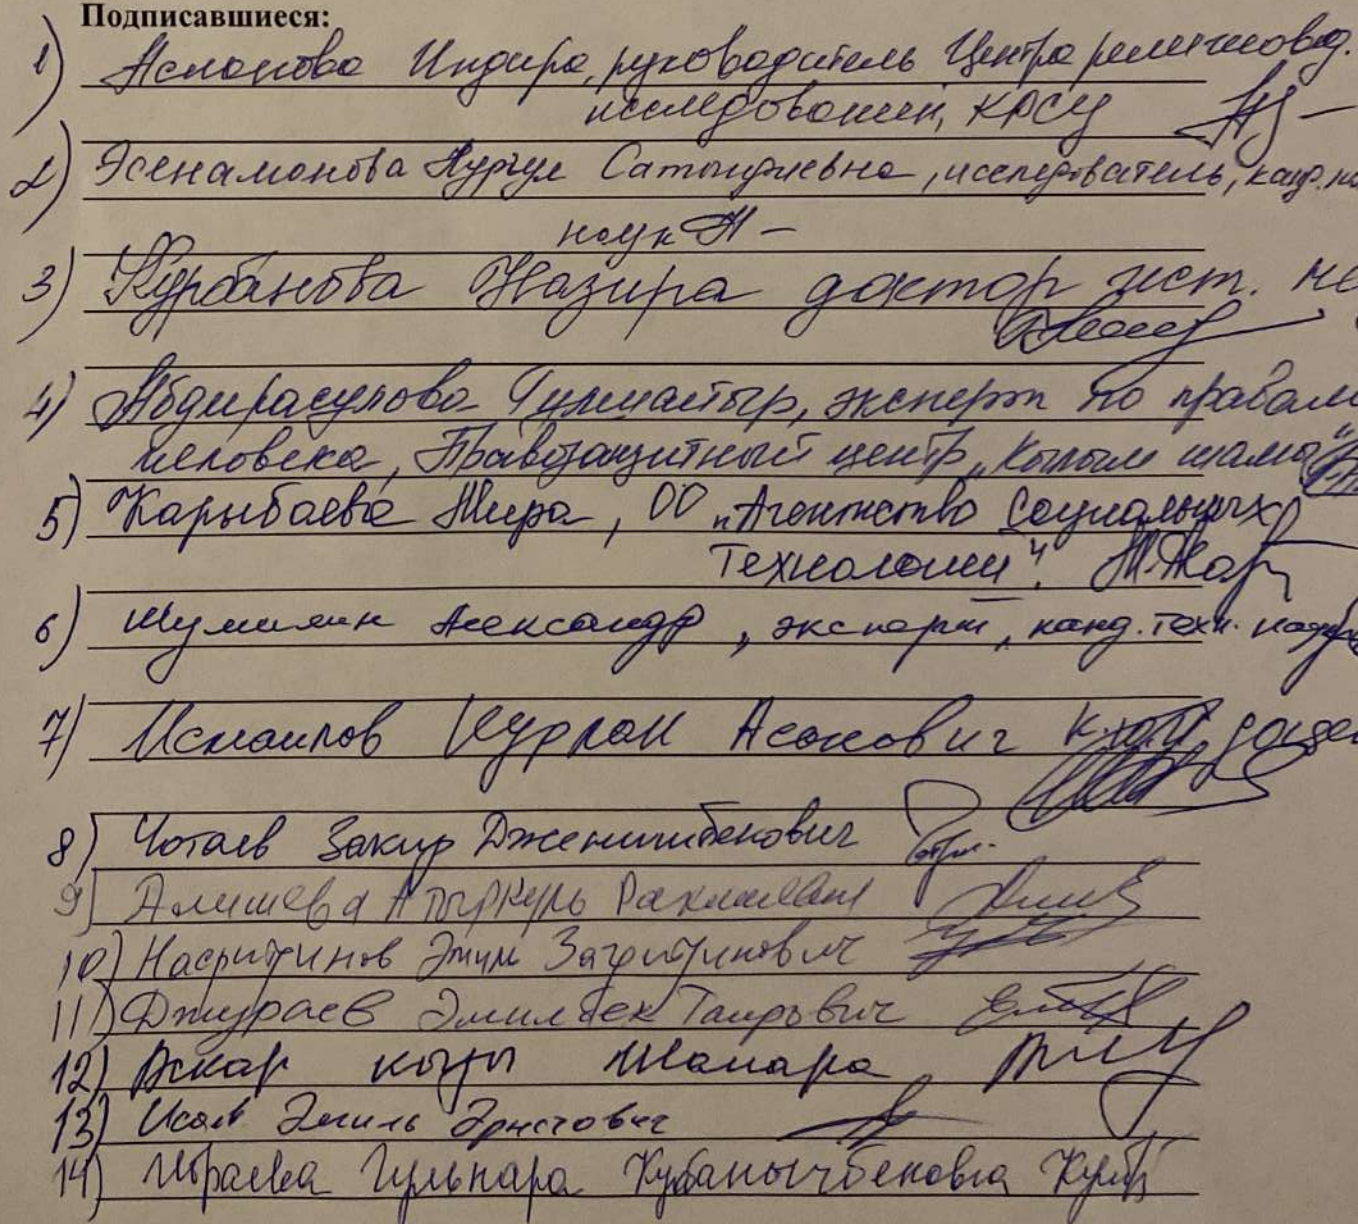 Подписавшиеся:
1) Асланова Индира, руководитель Центра религиовед.
исследований, КРСУ
2) Эсенаманова Нургул Сатындиевна, исследователь, канд. по
наук
3) Курбанова Назира доктор ист.
4) Абдирасулова Гулшайыр, эксперт по правам
человека, Правозащитный центр „Кылым шамы"
5) Карыбаева Мира, ОО „Агентство социальных
технологий".
6) Шумилин Александр, эксперт, канд. техн. наук
7) Исмаилов Нурлан Асанович к.ю.н, доцен
8) Чотаев Закир Дженишбекович
9) Алишева Атыркуль
10) Насритдинов Эмил Загритдинович
11) Джураев Эмилбек Таирович
12) Аскар кызы Шанара
13) Исаев Эмиль Эрнстович
14) Ибраева Гульнара Кубанычбековна